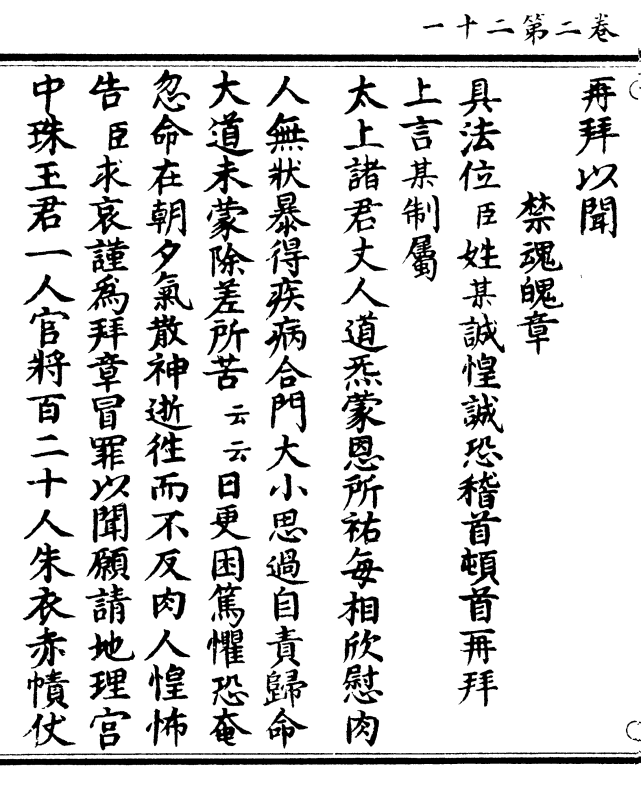 卷二第二十一
再拜以聞
禁魂魄章
具法位臣姓某誠惶誠恐稽首頓首再拜
上言某制屬
太上諸君丈人道炁蒙恩所祐每相欣慰肉
人無狀暴得疾病合門大小思過自責歸命
大道未蒙除差所苦云云日更困篤懼恐奄
忽命在朝夕氣散神逝徃而不反肉人惶怖
告臣求哀謹爲拜章冒罪以聞願請地理宮
中珠玉君一人官將百二十人朱衣赤幘仗